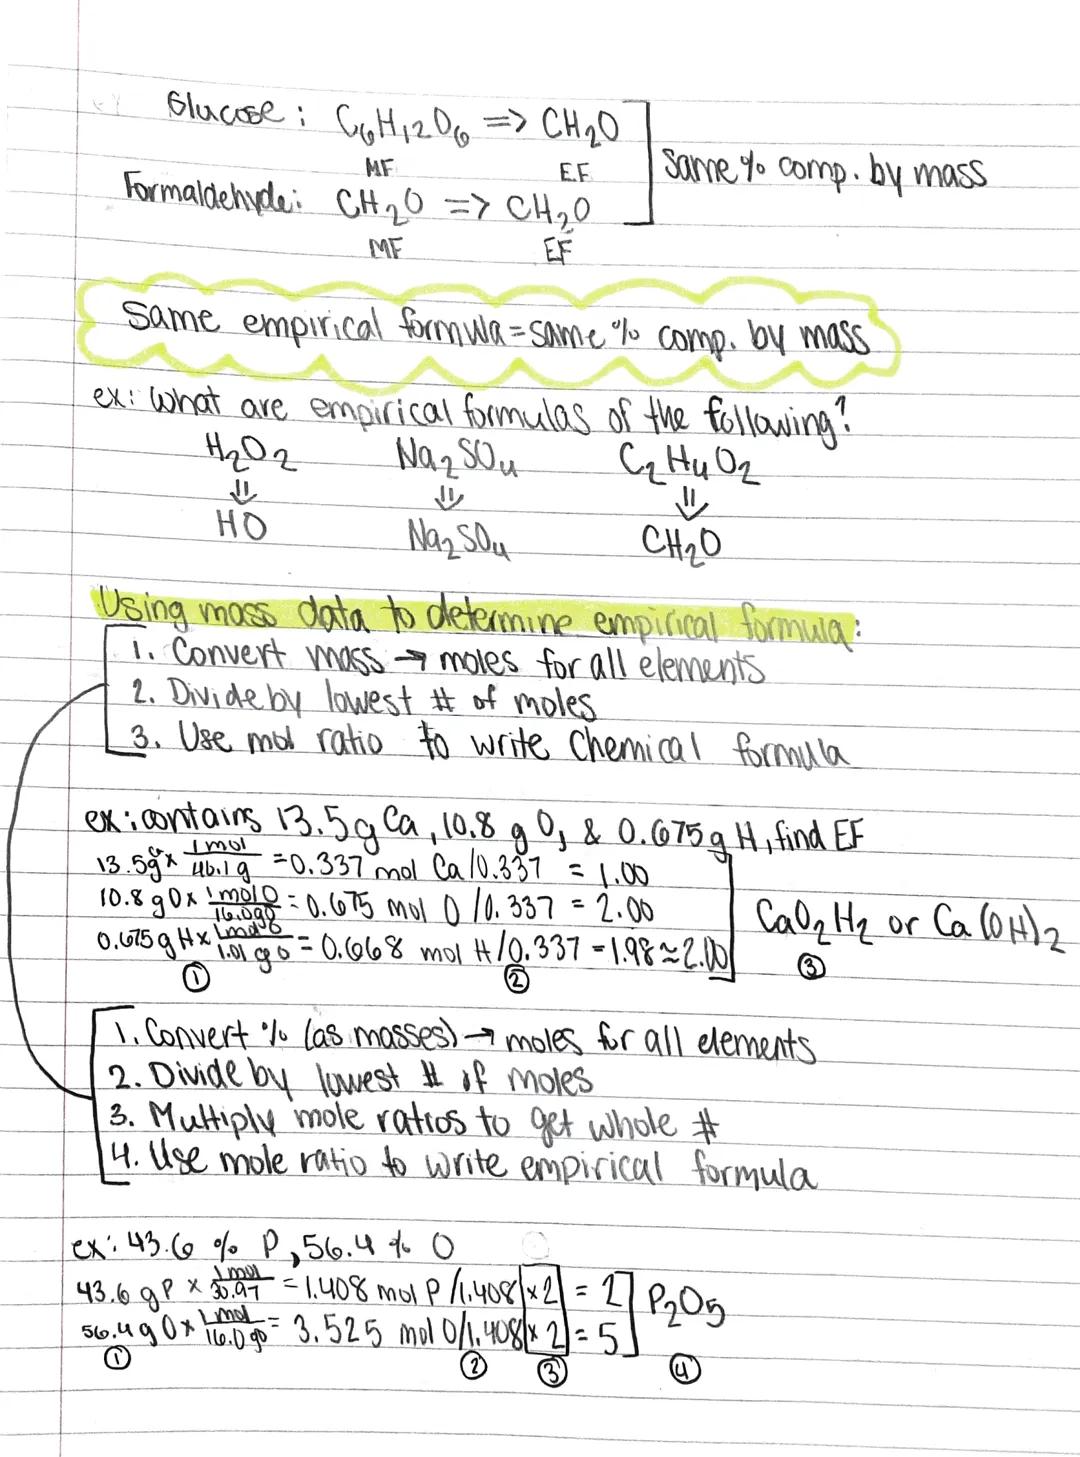 Glucose: C₆H₁₂O₆ => CH₂O
MF EF
Same % comp. by mass
Formaldehyde: CH₂O => CH₂O
MF EF
Same empirical formula = same % comp. by mass
ex: What are empirical formulas of the following?
H₂O₂ Na₂SO₄ C₂H₄O₂
⇓ ⇓ ⇓
HO Na₂SO₄ CH₂O
Using mass data to determine empirical formula:
1. Convert mass → moles for all elements
2. Divide by lowest # of moles
3. Use mol ratio to write Chemical formula
ex: contains 13.5g Ca, 10.8 g O, & 0.675 g H, find EF
13.5g x 1 mol / 40.1 g = 0.337 mol Ca /0.337 = 1.00
10.8 g O x 1 mol O / 16.0 g O = 0.675 mol O /0.337 = 2.00
CaO₂H₂ or Ca(OH)₂
0.675 g H x 1 mol O / 1.01 g O = 0.668 mol H /0.337 = 1.98 ≈ 2.00
① ② ③
1. Convert % (as masses) → moles for all elements
2. Divide by lowest # of moles
3. Multiply mole ratios to get whole #
4. Use mole ratio to write empirical formula
ex: 43.6 % P, 56.4 % O
43.6 g P x 1 mol / 30.97 = 1.408 mol P /1.408 x 2 = 2
P₂O₅
56.4 g O x 1 mol / 16.0 g O = 3.525 mol O /1.408 x 2 = 5
① ② ③ ④